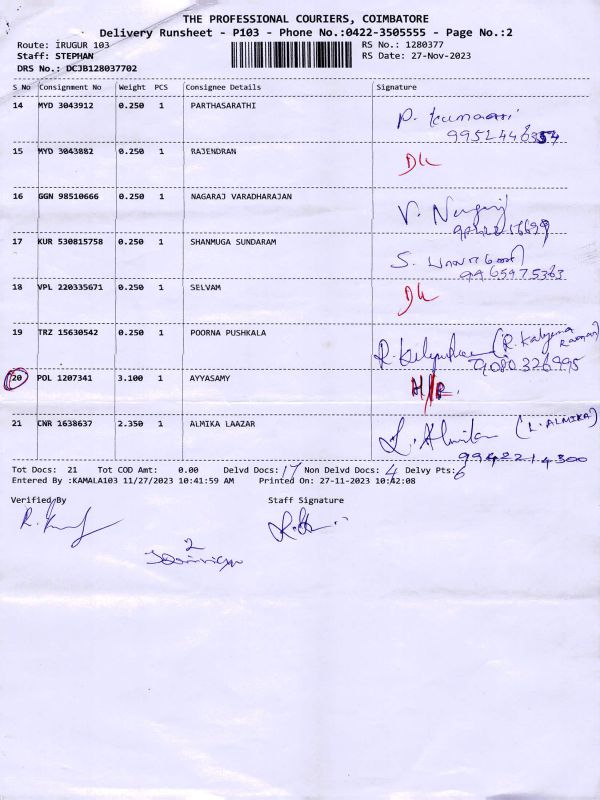 THE PROFESSIONAL COURIERS, COIMBATORE
Delivery Runsheet - P103 - Phone No.:0422-3505555 - Page No.:2
Route: IRUGUR 103 RS No.: 1280377
Staff: STEPHAN RS Date: 27-Nov-2023
DRS No.: DCJB128037702
S No Consignment No Weight PCS Consignee Details Signature
14 MYD 3043912 0.250 1 PARTHASARATHI
P. Kumaari
15 MYD 3043882 0.250 1 RAJENDRAN
DL
16 GGN 98510666 0.250 1 NAGARAJ VARADHARAJAN
V. Nagaraj
17 KUR 530815758 0.250 1 SHANMUGA SUNDARAM
S.
9965975363
18 VPL 220335671 0.250 1 SELVAM
DL
19 TRZ 15630542 0.250 1 POORNA PUSHKALA
9080326995
20 POL 1207341 3.100 1 AYYASAMY
21 CNR 1638637 2.350 1 ALMIKA LAAZAR
L. Almika (L. ALMIKA)
9942214300
Tot Docs: 21 Tot COD Amt: 0.00 Delvd Docs: 17 Non Delvd Docs: 4 Delvy Pts: 6
Entered By :KAMALA103 11/27/2023 10:41:59 AM Printed On: 27-11-2023 10:42:08
Verified By Staff Signature